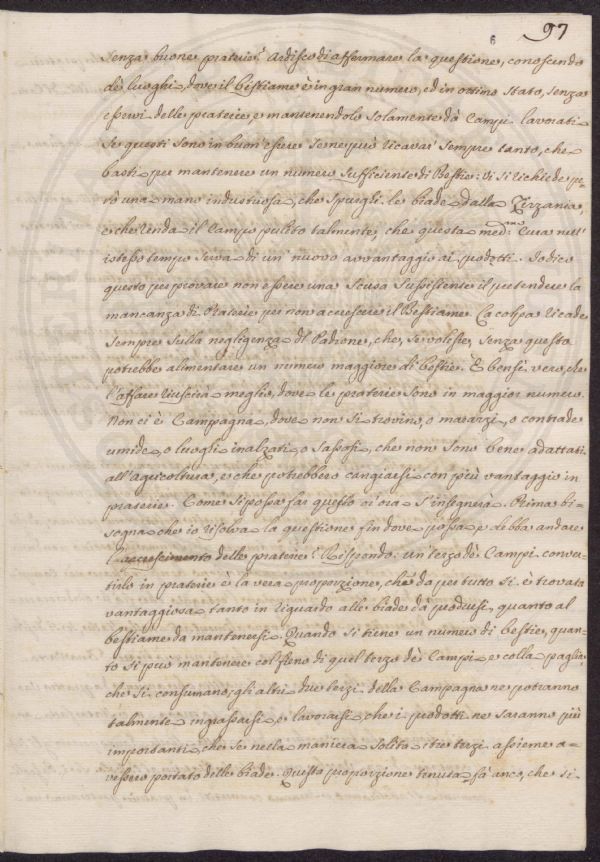 97
senza buone praterie? Ardisco di affermare la questione, conoscendo
de' luoghi, dove il bestiame è in gran numero, ed in ottimo stato, senza
esservi delle praterie, e mantenendolo solamente dà Campi lavorati.
Se questi sono in buon'essere se ne può ricavar' sempre tanto, che
basti per mantenere un numero sufficiente di Bestie: vi si richiede pe=
rò una mano industriosa, che spurghi le biade dalla Zizzania,
e che renda il Campo pulito talmente, che questa med:ma Cura nell'
istesso tempo serva di un' nuovo avvantaggio ai prodotti. Io dico
questo per provare non essere una scusa sussistente il pretendere la
mancanza di Praterie per non accrescere il Bestiame. La colpa ricade
sempre sulla negligenza del Padrone, che, se volesse, senza questa
potrebbe alimentare un numero maggiore di bestie. È bensì vero, che
l'affare riuscirà meglio, dove le praterie sono in maggior numero.
Non ci è Campagna, dove non si trovino, o marazzi, o contrade
umide, o luoghi inalzati, o sassosi, che non sono bene adattati
all'agricoltura, e che potrebbero cangiarsi con più vantaggio in
praterie. Come si possa far questo ci ora s'insegnerà. Prima bi=
sogna che io risolva la questione fin dove possa, e debba andare
l'accrescimento delle praterie? Rispondo, un terzo de' Campi conver
tirlo in praterie è la vera proporzione, che da per tutto si è trovata
vantaggiosa tanto in riguardo alle biade da prodursi, quanto al
bestiame da mantenersi. Quando si tiene un numero di bestie, quan=
to si può mantenere col fieno di quel terzo de' Campi e colla paglia,
che si consumano, gli altri due terzi della Campagna ne potranno
talmente ingrassarsi, e lavorarsi che i prodotti ne saranno più
importanti, che se nella maniera solita i tre terzi assieme a=
vessero portato delle biade. Questa proporzione tenuta fà anco, che si